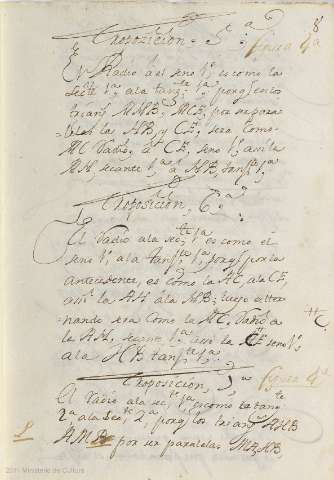 Proposizion, 5ª
8
figura 4ª
El Radio al seno 1º es como la
secte 1ª, ala tangte 1ª, porqe los
triangs AHB, MCE, por ser para
lelas la HB, y CE, sera como
AC Radio, a CE, seno 1º, assi la
AH, secante 1ª, a HB, tangte 1ª,
Proposizion, 6ª
El Radio ala secte 1ª es como el
seno 1º, ala tangte 1ª, porqe por la
antecedente, es como la AC, ala CE,
assi la AH ala HB; luego alter
nando sera como la AC, Radio a
la AH, secante 1ª assi la CE seno 1º
ala HB tangte 1ª,
Proposizion, 7ª
figura 4ª
El Radio ala secte 1ª, es como la tangte
2ª ala secte 2ª, porqe los triangs AHB
AMD por ser paralelas
2011 Ministerio de Cultura